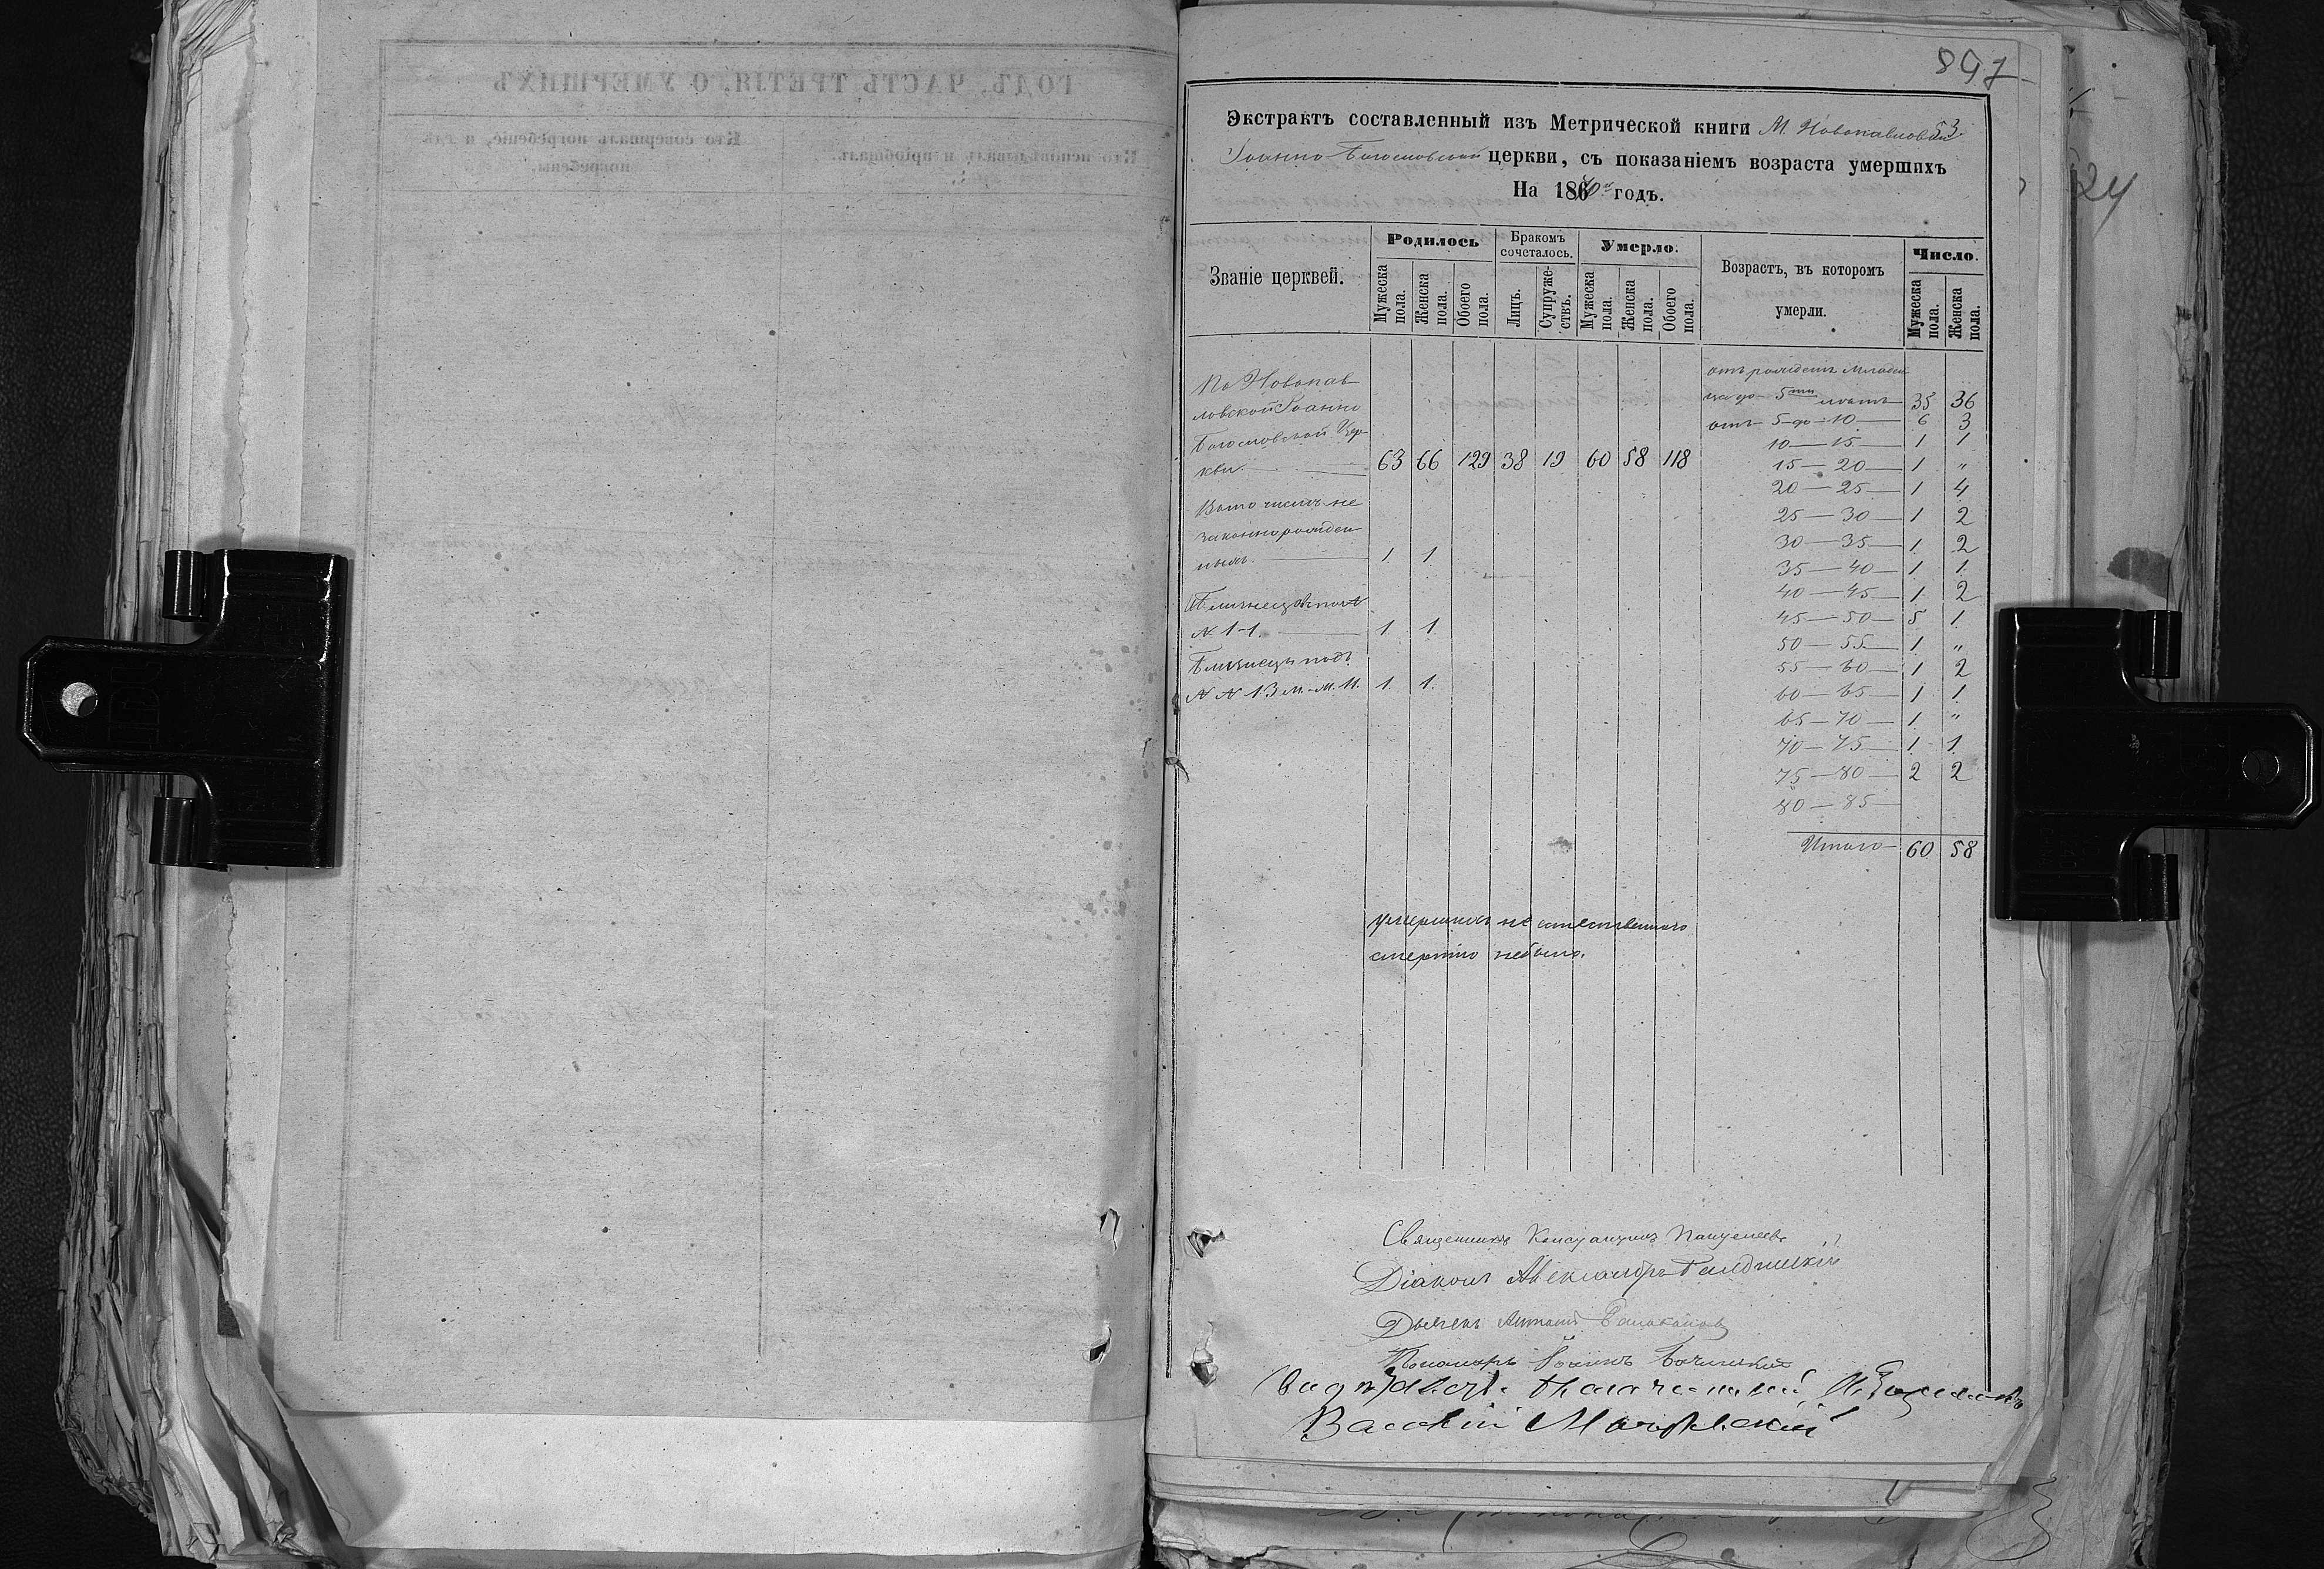 897
53
Экстрактъ составленный изъ Метрической книги М. Новопавловской
Іоанно-Богословской церкви, съ показаніемъ возраста умершихъ
На 1870й годъ.
Званіе церквей. Родилось Бракомъ сочеталось. Умерло. Возрастъ, въ которомъ умерли. Число.
Мужеска пола. Женска пола. Обоего пола. Лицъ. Супружествъ. Мужеска пола. Женска пола. Обоего пола. Мужеска пола. Женска пола.
По Новопав
ловской Іоанно
Богословской Цер
кви 63 66 129 38 19 60 58 118
Въ томъ числѣ не
законнорожден
ныхъ 1. 1.
Близнецы подъ
N 1-1. 1. 1.
Близнецы подъ
N N 13 м.-м. 11. 1. 1.
отъ рожденія младен
ца до 5ти лѣтъ 35 36
отъ 5 до 10 6 3
10 — 15 1 1
15 — 20 1 "
20 — 25 1 4
25 — 30 1 2
30 — 35 1 2
35 — 40 1 1
40 — 45 1 2
45 — 50 5 1
50 — 55 1 "
55 — 60 1 2
60 — 65 1 1
65 — 70 1 "
70 — 75 1 1
75 — 80 2 2
80 — 85
Итого 60 58
умершихъ не естественною
смертію небыло.
Священникъ Константинъ Пантелеевъ
Діаконъ Александръ
Дьячекъ Антоній
Пономарь Іоаннъ
Василій
24
ГОДЪ, ЧАСТЬ ТРЕТІЯ, О УМЕРШИХЪ
Кто исповѣдывалъ и пріобщалъ.
Кто совершалъ погребеніе, и гдѣ погребены.